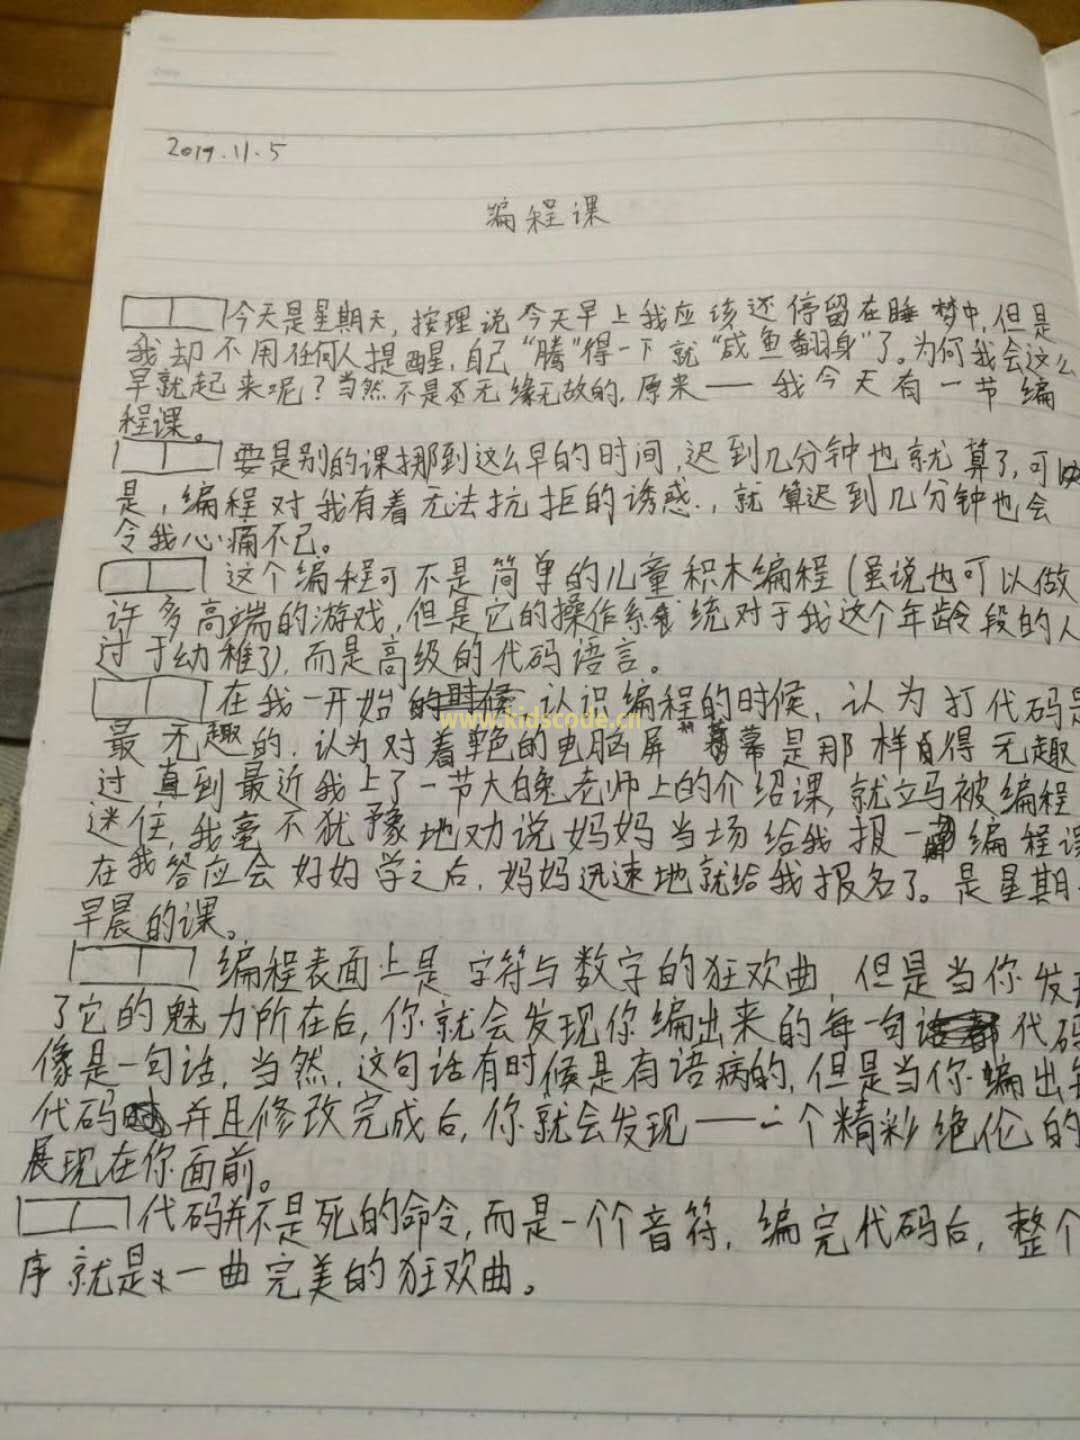 2019.11.5
编程课
今天是星期天，按理说今天早上我应该还停留在睡梦中，但是
我却不用任何人提醒，自己“腾”得一下就“咸鱼翻身”了。为何我会这么
早就起来呢？当然不是无缘无故的，原来——我今天有一节编
程课。
要是别的课挪到这么早的时间，迟到几分钟也就算了，可
是，编程对我有着无法抗拒的诱惑，就算迟到几分钟也会
令我心痛不已。
这个编程可不是简单的儿童积木编程（虽说也可以做
许多高端的游戏，但是它的操作系统对于我这个年龄段的人
过于幼稚了），而是高级的代码语言。
在我一开始认识编程的时候，认为打代码是
最无趣的，认为对着的电脑屏幕是那样得无趣
过直到最近我上了一节大白兔老师上的介绍课，就立马被编程
迷住，我毫不犹豫地劝说妈妈当场给我报一编程课
在我答应会好好学之后，妈妈迅速地就给我报名了。是星期
早晨的课。
www.kidscode.cn
编程表面上是字符与数字的狂欢曲，但是当你发现
了它的魅力所在后，你就会发现你编出来的每一句代码
像是一句话，当然，这句话有时候是有语病的，但是当你编出
代码并且修改完成后，你就会发现——一个精彩绝伦的
展现在你面前。
代码并不是死的命令，而是一个个音符，编完代码后，整个
序就是一曲完美的狂欢曲。